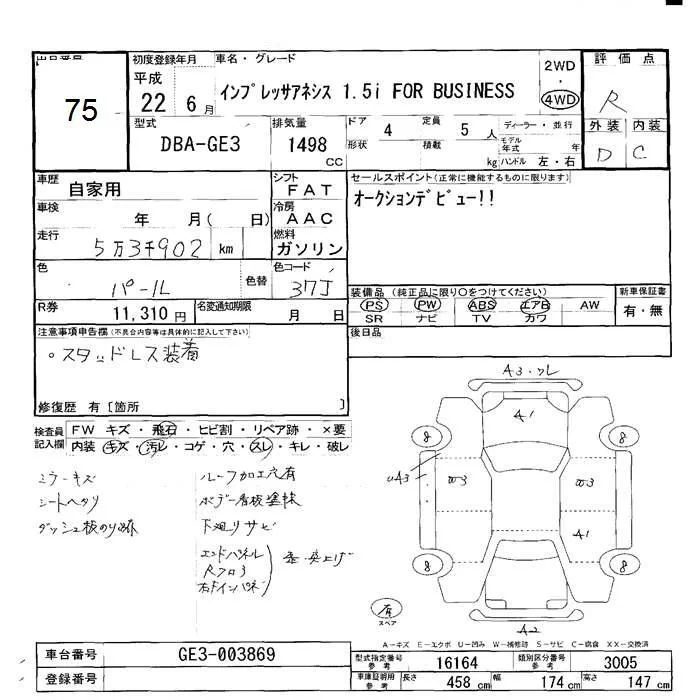 出品番号
75
初度登録年月
平成
22 6月
車名・グレード
インプレッサアネシス 1.5i FOR BUSINESS
2WD
・
4WD
評価点
R
外装 内装
D C
型式
DBA-GE3
排気量
1498
CC
ドア 4
形状
定員 5人
積載 kg
ディーラー・並行
モデル年式 年
ハンドル 左・右
車歴 自家用
車検 年 月( 日)
走行 5万3千902 km
色 パール
色替
シフト
FAT
冷房
AAC
燃料
ガソリン
色コード
37J
R券 11,310円
名変通知期限 月 日
セールスポイント(正常に機能するものに限ります)
オークションデビュー!!
装備品(純正品に限り○をつけてください)
PS PW ABS エアB AW
SR ナビ TV カワ
新車保証書
有・無
後日品
注意事項申告欄(不具合内容等は具体的に記入して下さい)
。スタッドレス装着
修復歴 有〔箇所 〕
検査員記入欄
FW キズ・飛石・ヒビ割・リペア跡・×要
内装・キズ・汚レ・コゲ・穴・スレ・キレ・破レ
ミラーキズ
シートヘタリ
ダッシュ板のり跡
ルーフ加工穴有
ボデー看板塗抹
下廻リサビ
エンドパネル
Rフロア
右ドインパネ
A3・ワレ
A1
8
8
UA3
W3
W3
A1
8
8
有
スペア
A2
A-キズ E-エクボ U-凹み W-補修跡 S-サビ C-腐食 XX-交換済
車台番号 GE3-003869
登録番号
型式指定番号
参考
16164
類別区分番号
参考
3005
車庫証明用
参考
長さ 458 cm
幅 174 cm
高さ 147 cm